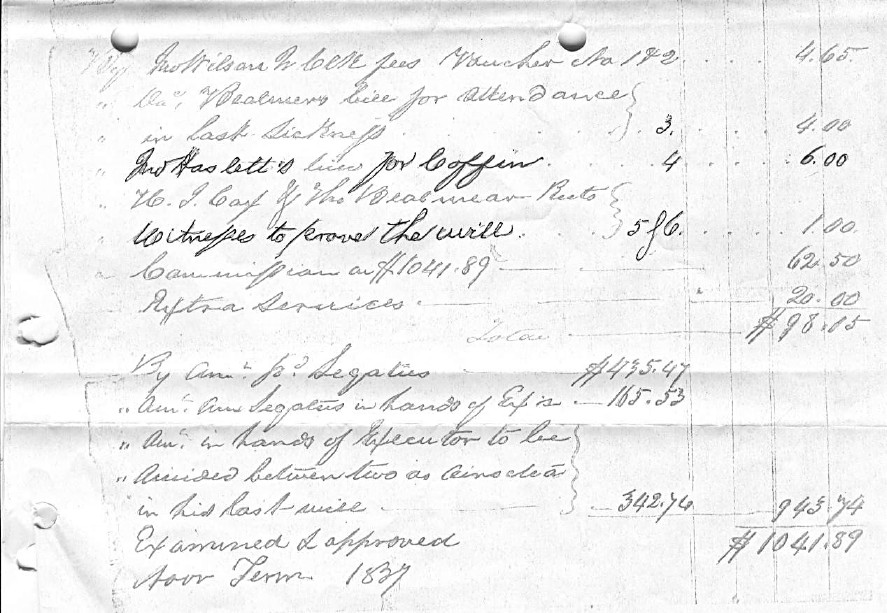 By Jno Wilson W Clk fees Voucher No 1 & 2 . . . . 4.65
" Da. Bealmers bill for attendance
" in last sickness . . . . . 3. . . . . 4.00
" Jno Haslett's bill for Coffin . . . . 4 . . . . 6.00
" H. J. & Tho Bealmear
" Witnesses to prove the will . . . . 5 & 6. . . . 1.00
" Commission on $1041.89 62.50
Extra Services 20.00
Total $98.15
By Amt. pd Legatees $435.47
" Amt. due Legatees in hands of Ex'r. 165.53
" Amt. in hands of Executor to be
" divided between two as directed
in his last will 342.74 943.74
Examined & approved $1041.89
Novr Term 1837